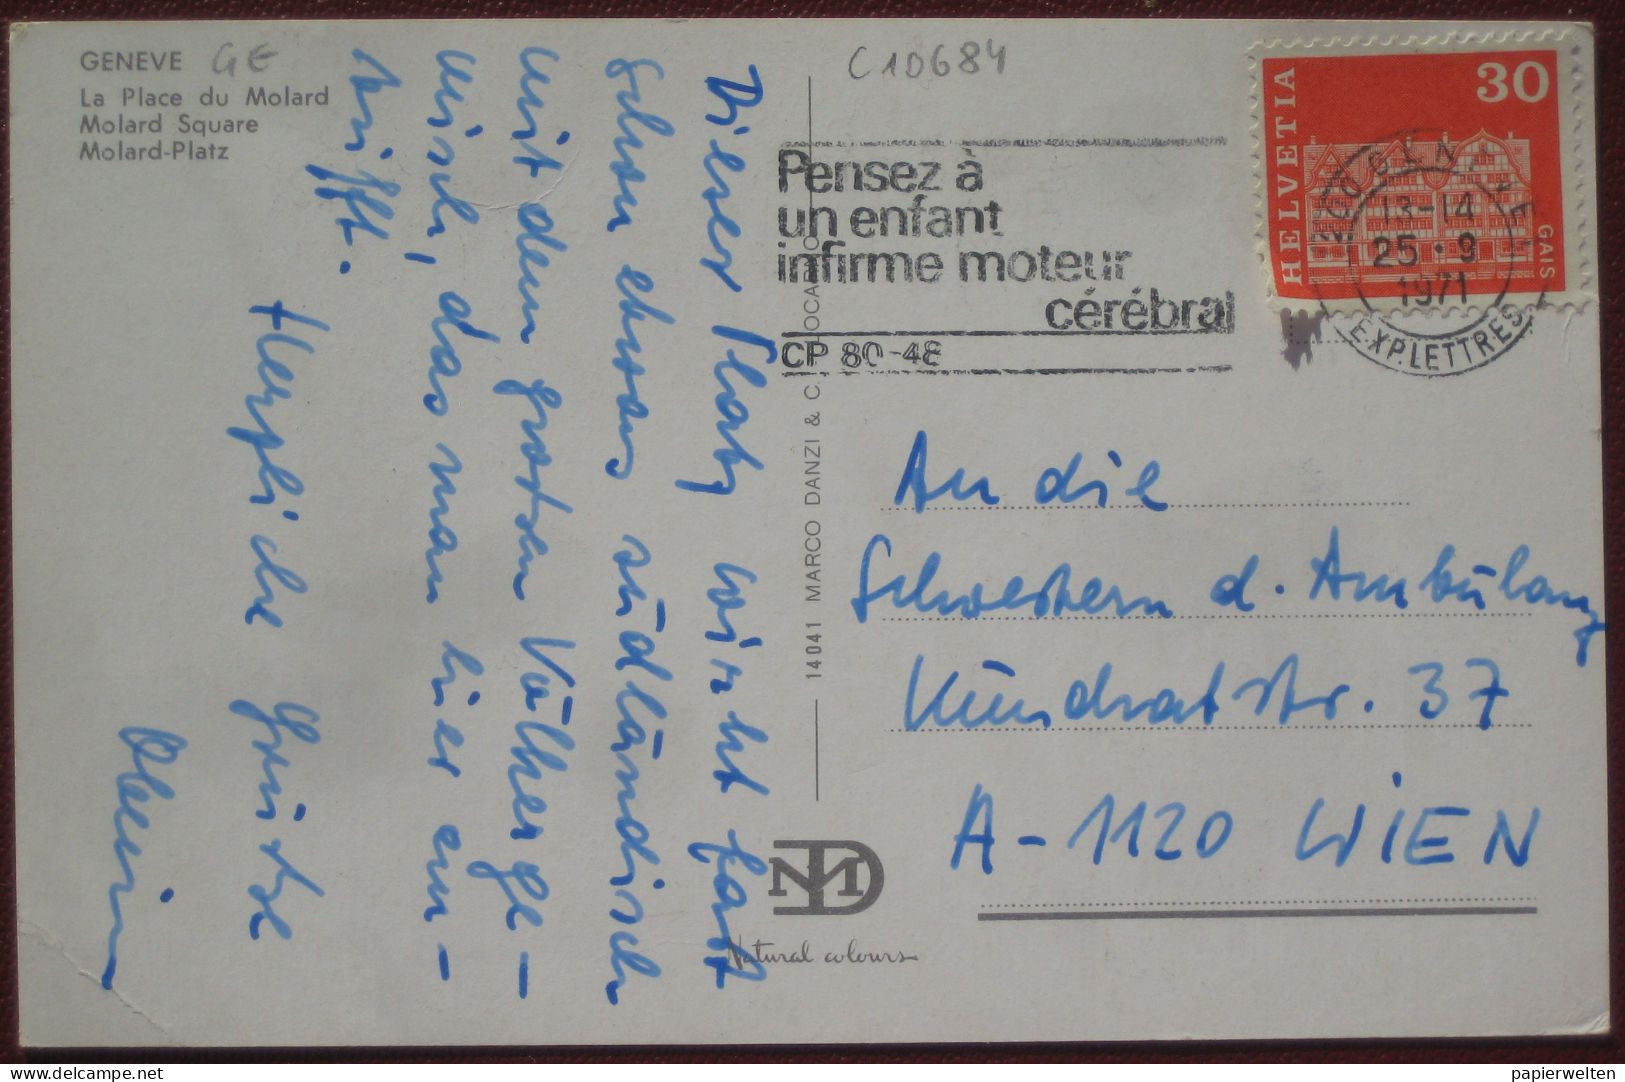 GENEVE GE
La Place du Molard
Molard Square
Molard-Platz
C10684
Dieser Platz wirkt fast
schon etwas südländisch
mit dem grossen Völkerge-
misch, das man hier an-
trifft.
Herzliche Grüsse
Pensez à
un enfant
infirme moteur
cérébral
CP 80-48
HELVETIA
30
GAIS
13-14
25.9
1971
EXP.LETTRES
14041 MARCO DANZI & C. LOCARNO
An die
Schwestern d. Ambulanz
Kundratstr. 37
A-1120 WIEN
Natural colours
delcampe.net
papierwelten